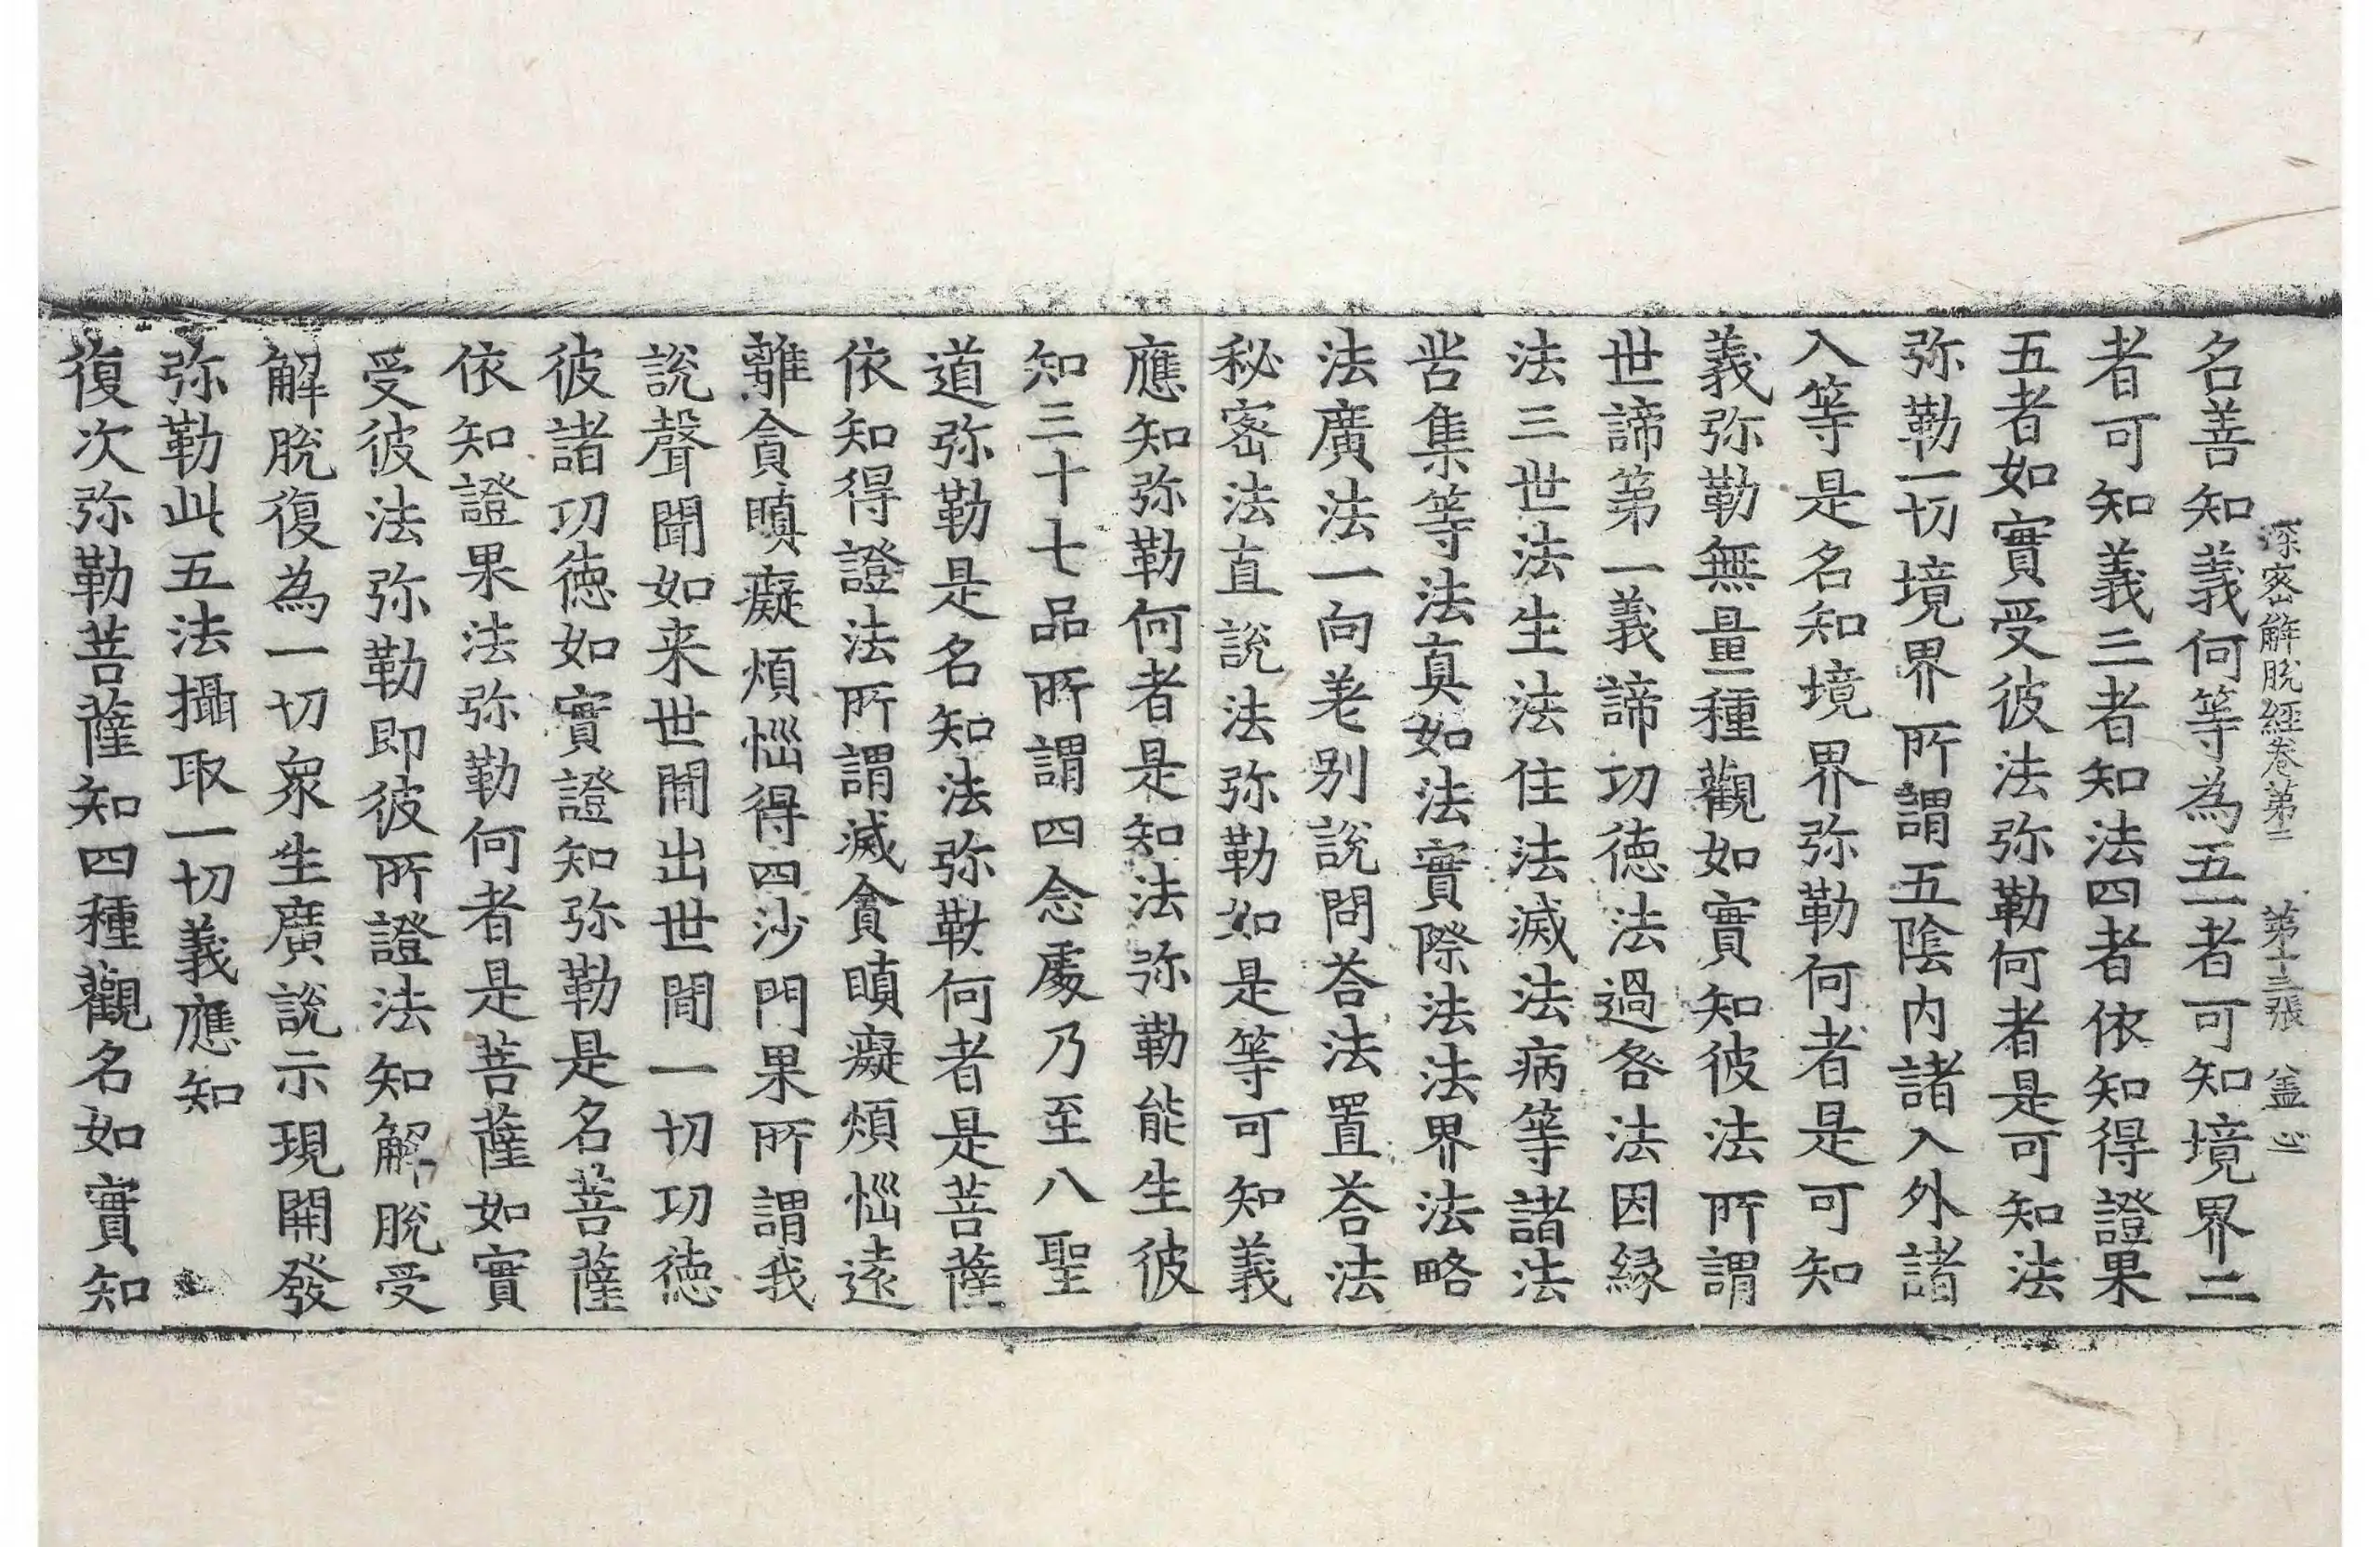 深密解脱經卷第三 第十三張 盖
名善知義何等為五一者可知境界二
者可知義三者知法四者依知得證果
五者如實受彼法弥勒何者是可知法
弥勒一切境界所謂五陰内諸入外諸
入等是名知境界弥勒何者是可知
義弥勒無量種觀如實知彼法所謂
世諦第一義諦功徳法過咎法因縁
法三世法生法住法滅法病等諸法
苦集等法真如法實際法法界法略
法廣法一向差别說問荅法置荅法
秘密法直說法弥勒如是等可知義
應知弥勒何者是知法弥勒能生彼
知三十七品所謂四念處乃至八聖
道弥勒是名知法弥勒何者是菩薩
依知得證法所謂滅貪瞋癡煩惱遠
離貪瞋癡煩惱得四沙門果所謂我
說聲聞如来世間出世間一切功徳
彼諸功徳如實證知弥勒是名菩薩
依知證果法弥勒何者是菩薩如實
受彼法弥勒即彼所證法知解脱受
解脱復為一切衆生廣說示現開發
弥勒此五法攝取一切義應知
復次弥勒菩薩知四種觀名如實知